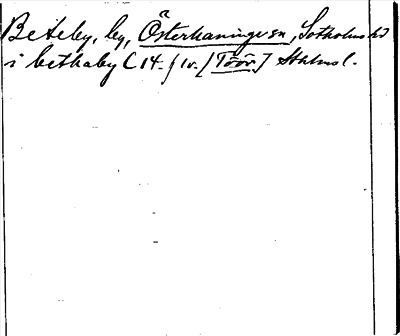 Beteby, by, Österhaninge sn, Sotholms hd
i bethaby C 14. f 1v. [Töör.] Sthlms l.